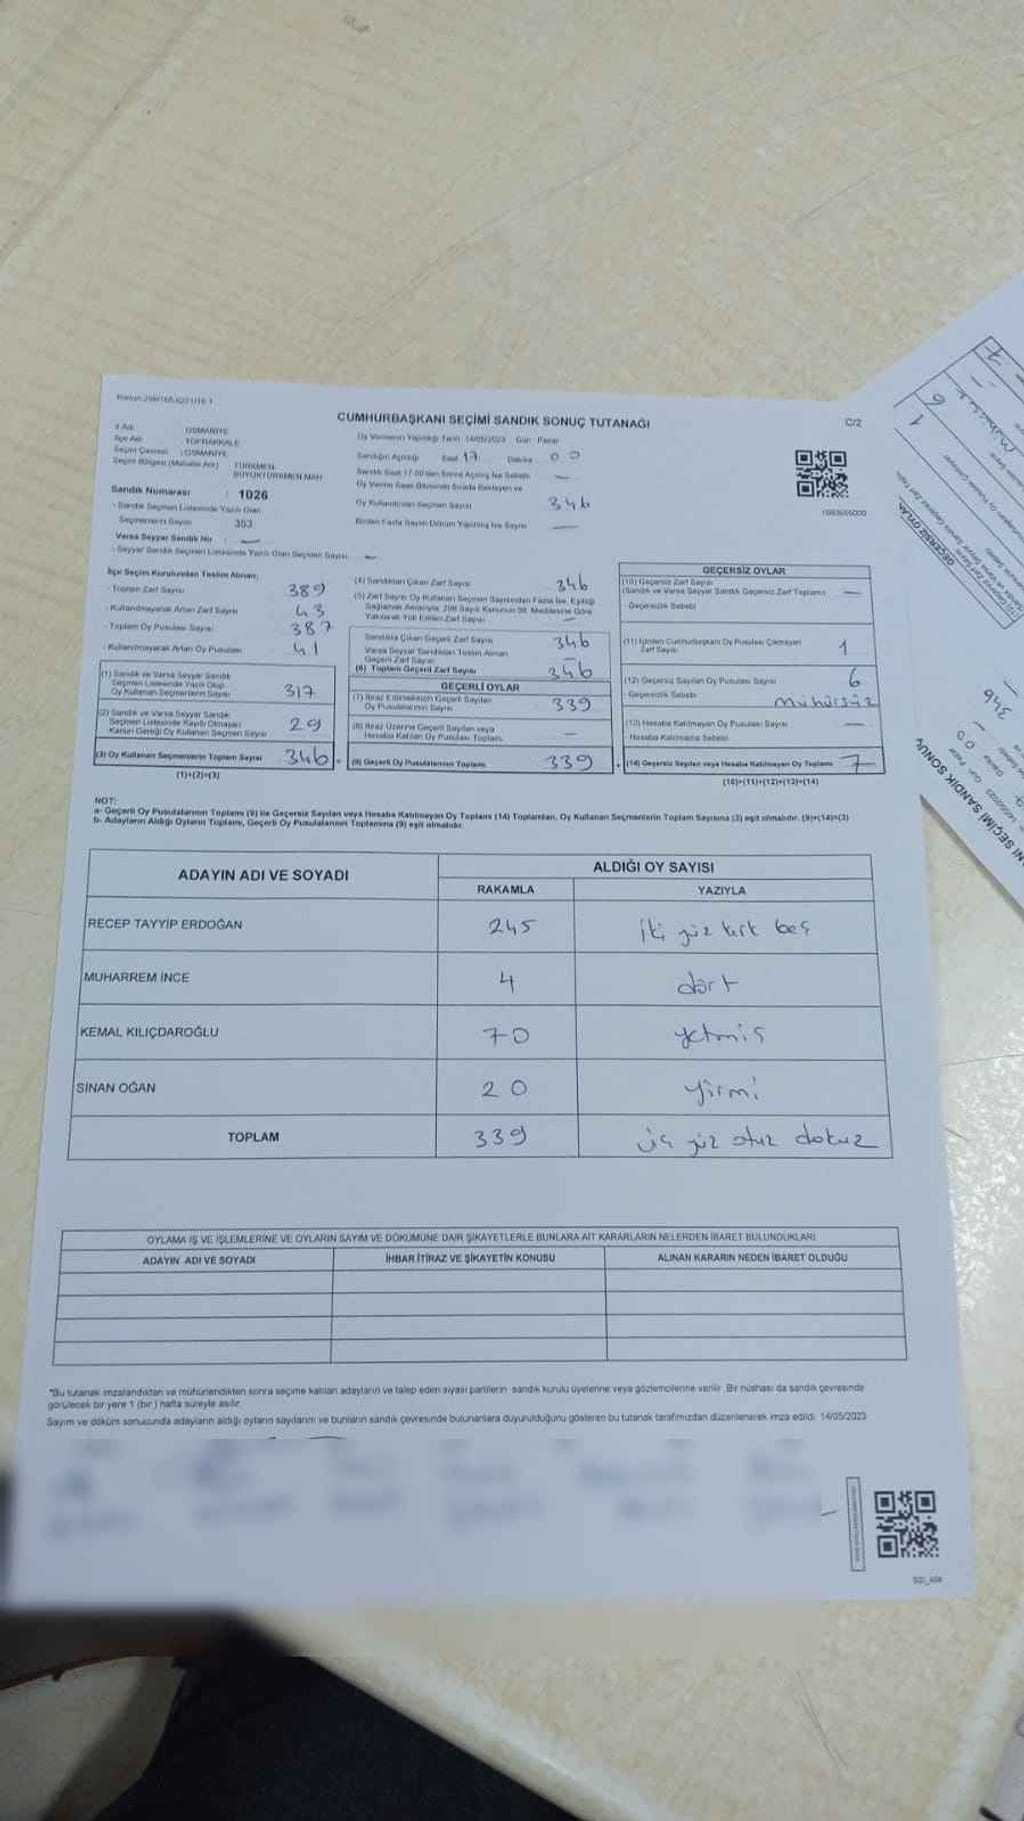 CUMHURBAŞKANI SEÇİMİ SANDIK SONUÇ TUTANAĞI
C/2
İl Adı : OSMANİYE
İlçe Adı : TOPRAKKALE
Seçim Çevresi : OSMANİYE
Seçim Bölgesi (Mahalle Adı) : TÜRKMEN
BÜYÜKTÜRKMEN MAH
Sandık Numarası : 1026
Sandık Seçmen Listesinde Yazılı Olan
Seçmenlerin Sayısı 353
Varsa Seyyar Sandık No : —
- Seyyar Sandık Seçmen Listesinde Yazılı Olan Seçmen Sayısı —
Oy Vermenin Yapıldığı Tarih 14/05/2023 Gün Pazar
Sandığın Açıldığı Saat 17 Dakika 00
Sandık Saat 17.00'den Sonra Açılmış İse Sebebi —
Oy Verme Saati Bitiminde Sırada Bekleyen ve
Oy Kullandırılan Seçmen Sayısı 346
Birden Fazla Sayım Döküm Yapılmış İse Sayısı —
İlçe Seçim Kurulundan Teslim Alınan;
- Toplam Zarf Sayısı 389
- Kullanılmayarak Artan Zarf Sayısı 43
- Toplam Oy Pusulası Sayısı 387
- Kullanılmayarak Artan Oy Pusulası 41
(1) Sandık ve Varsa Seyyar Sandık
Seçmen Listesinde Yazılı Olup
Oy Kullanan Seçmenlerin Sayısı 317
(2) Sandık ve Varsa Seyyar Sandık
Seçmen Listesinde Kayıtlı Olmayan
Kanun Gereği Oy Kullanan Seçmen Sayısı 29
(3) Oy Kullanan Seçmenlerin Toplam Sayısı 346
(1)+(2)=(3)
(4) Sandıktan Çıkan Zarf Sayısı 346
(5) Zarf Sayısı Oy Kullanan Seçmen Sayısından Fazla İse, Eşitliği
Sağlamak Amacıyla, 298 Sayılı Kanunun 98. Maddesine Göre
Yakılarak Yok Edilen Zarf Sayısı —
Sandıkta Çıkan Geçerli Zarf Sayısı 346
Varsa Seyyar Sandıktan Teslim Alınan
Geçerli Zarf Sayısı —
(6) Toplam Geçerli Zarf Sayısı 346
GEÇERLİ OYLAR
(7) İtiraz Edilmeksizin Geçerli Sayılan
Oy Pusulalarının Sayısı 339
(8) İtiraz Üzerine Geçerli Sayılan veya
Hesaba Katılan Oy Pusulası Toplamı —
(9) Geçerli Oy Pusulalarının Toplamı 339
GEÇERSİZ OYLAR
(10) Geçersiz Zarf Sayısı
(Sandık ve Varsa Seyyar Sandık Geçersiz Zarf Toplamı) —
Geçersizlik Sebebi
(11) İçinden Cumhurbaşkanı Oy Pusulası Çıkmayan
Zarf Sayısı 1
(12) Geçersiz Sayılan Oy Pusulası Sayısı 6
Geçersizlik Sebebi mühürsüz
(13) Hesaba Katılmayan Oy Pusulası Sayısı —
Hesaba Katılmama Sebebi
(14) Geçersiz Sayılan veya Hesaba Katılmayan Oy Toplamı 7
(10)+(11)+(12)+(13)=(14)
NOT:
a- Geçerli Oy Pusulalarının Toplamı (9) ile Geçersiz Sayılan veya Hesaba Katılmayan Oy Toplamı (14) Toplamları, Oy Kullanan Seçmenlerin Toplam Sayısına (3) eşit olmalıdır. (9)+(14)=(3)
b- Adayların Aldığı Oyların Toplamı, Geçerli Oy Pusulalarının Toplamına (9) eşit olmalıdır.
ADAYIN ADI VE SOYADI
ALDIĞI OY SAYISI
RAKAMLA YAZIYLA
RECEP TAYYİP ERDOĞAN 245 iki yüz kırk beş
MUHARREM İNCE 4 dört
KEMAL KILIÇDAROĞLU 70 yetmiş
SİNAN OĞAN 20 yirmi
TOPLAM 339 üç yüz otuz dokuz
OYLAMA İŞ VE İŞLEMLERİNE VE OYLARIN SAYIM VE DÖKÜMÜNE DAİR ŞİKAYETLERLE BUNLARA AİT KARARLARIN NELERDEN İBARET BULUNDUKLARI
ADAYIN ADI VE SOYADI İHBAR İTİRAZ VE ŞİKAYETİN KONUSU ALINAN KARARIN NEDEN İBARET OLDUĞU
*Bu tutanak imzalandıktan ve mühürlendikten sonra seçime katılan adayların ve talep eden siyasi partilerin sandık kurulu üyelerine veya gözlemcilerine verilir. Bir nüshası da sandık çevresinde
görülecek bir yere 1 (bir) hafta süreyle asılır.
Sayım ve döküm sonucunda adayların aldığı oyların sayılarını ve bunların sandık çevresinde bulunanlara duyurulduğunu gösteren bu tutanak tarafımızdan düzenlenerek imza edildi. 14/05/2023